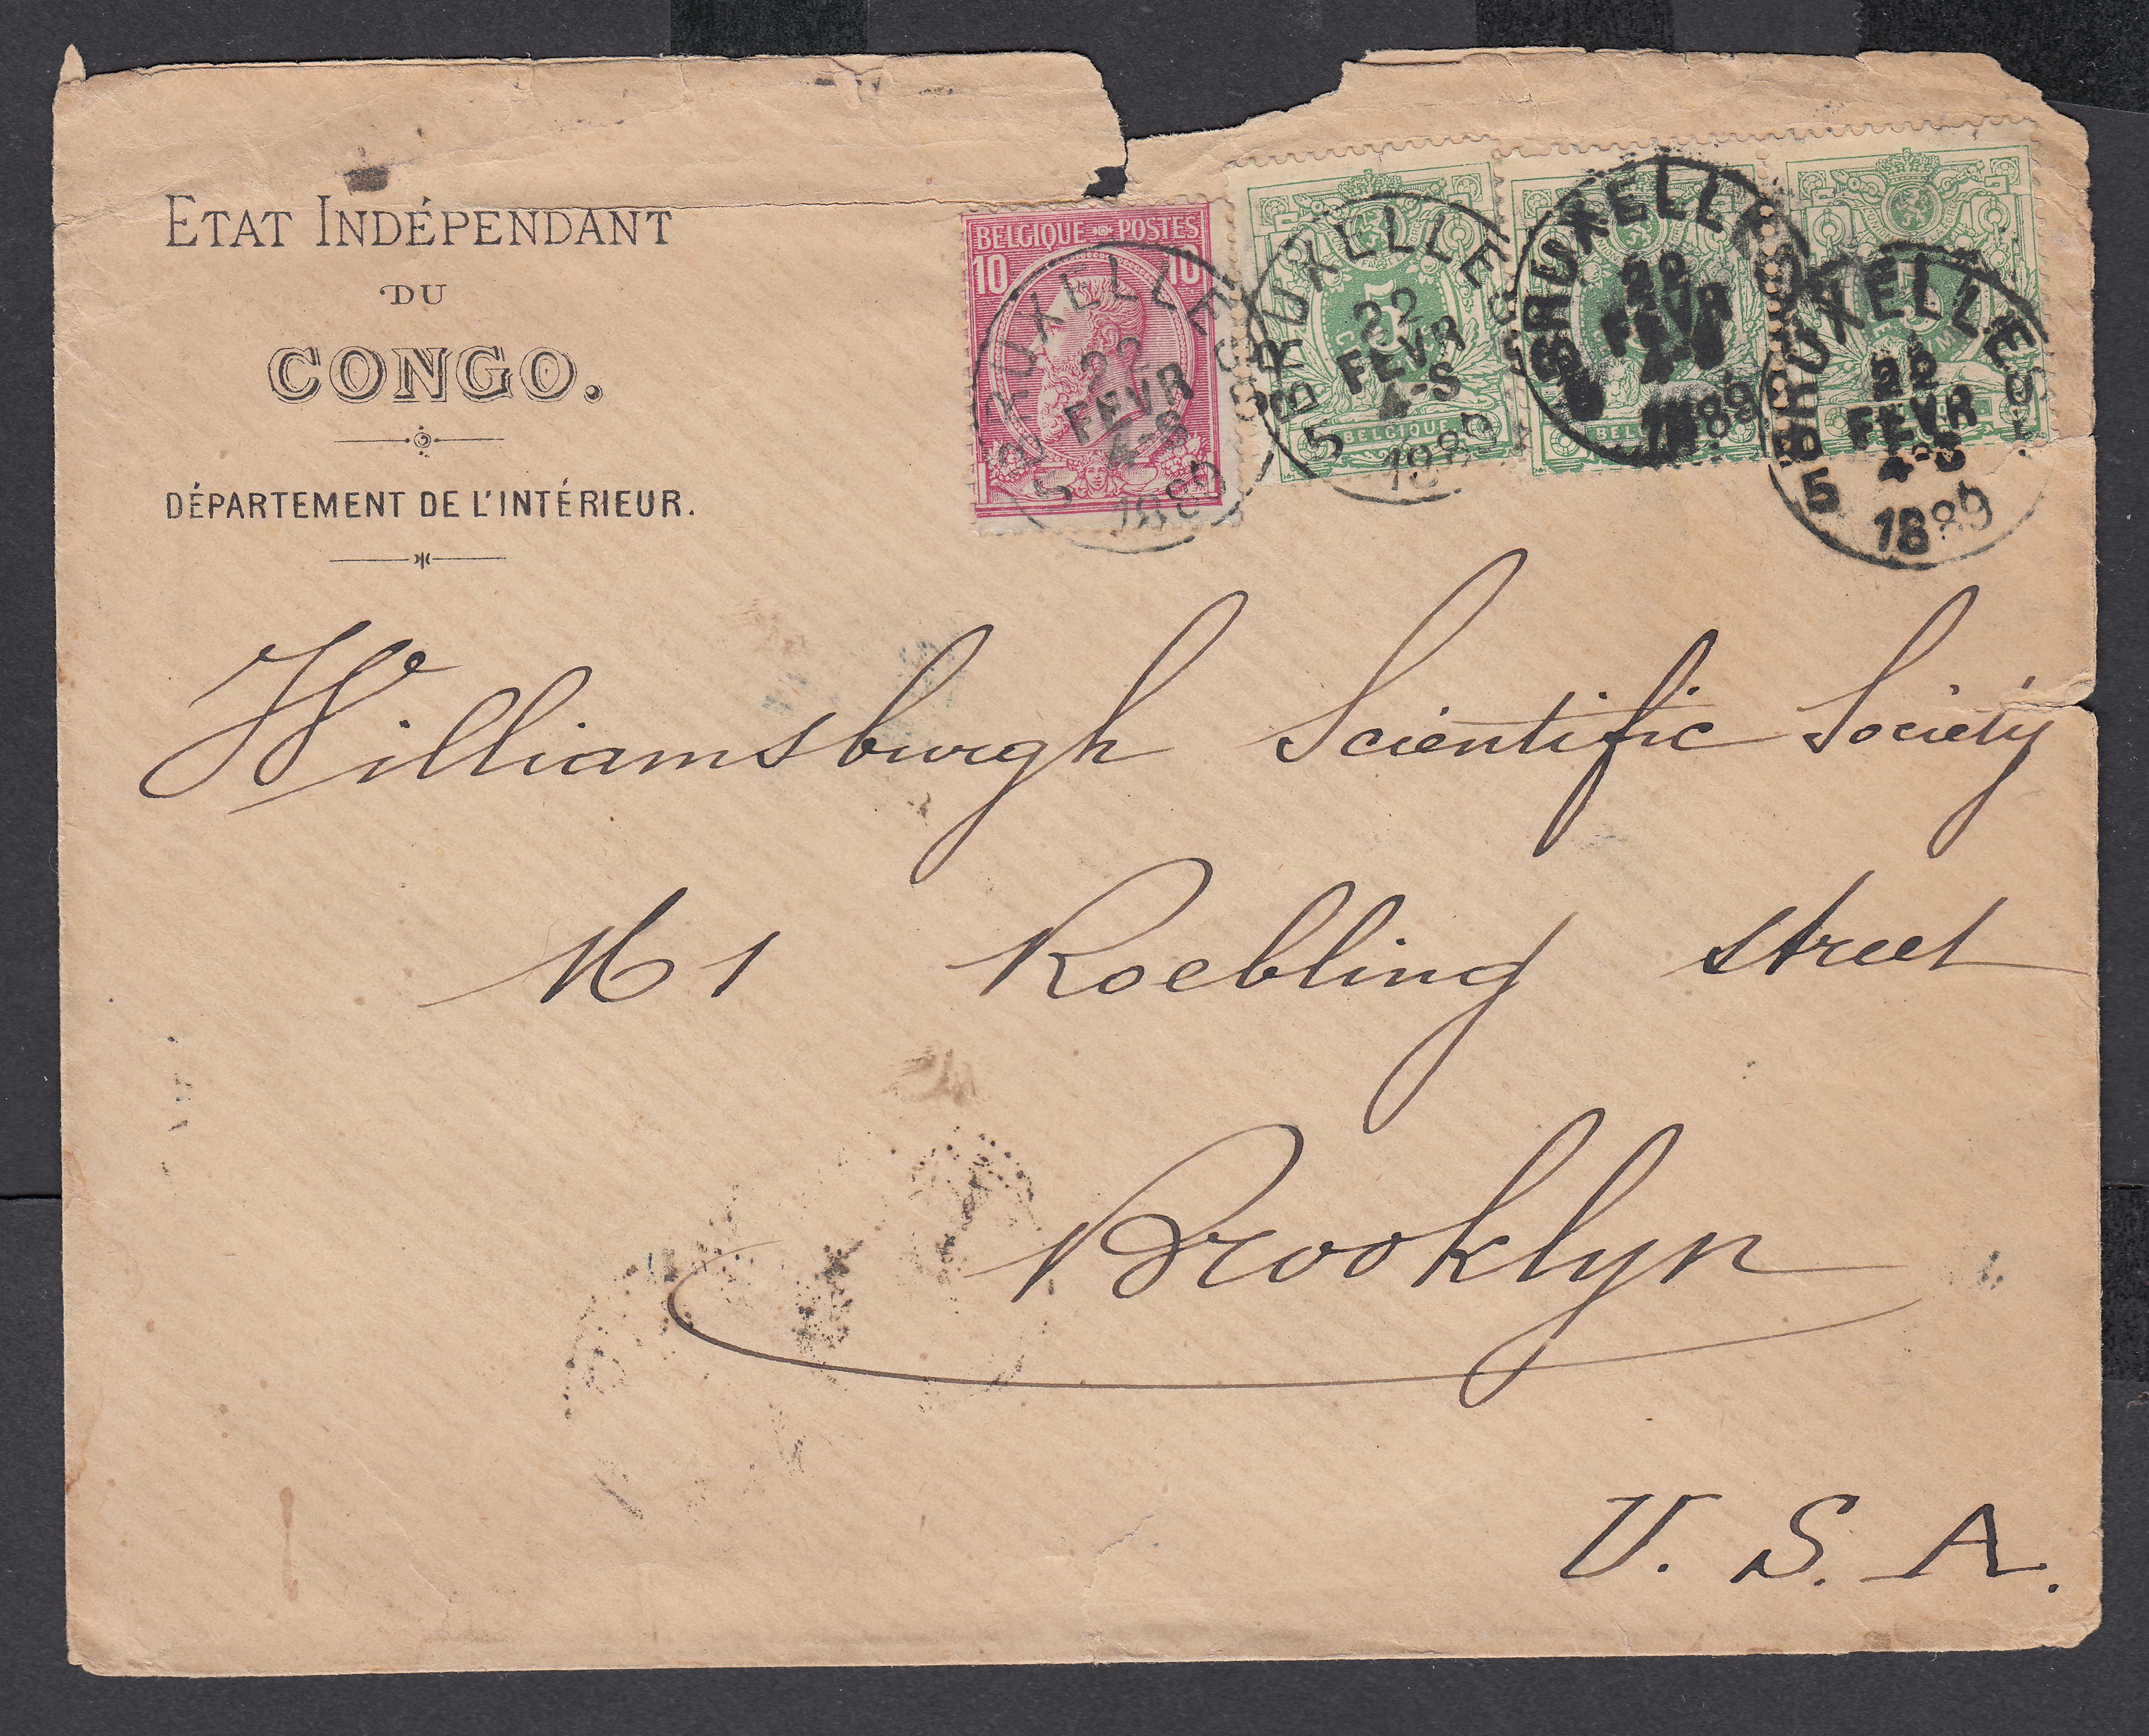 ETAT INDÉPENDANT
DU
CONGO.
DÉPARTEMENT DE L'INTÉRIEUR.
BELGIQUE POSTES
10 10
BRUXELLES
22
FEVR
4-S
1889
5
5
BELGIQUE
BRUXELLES
22
FEVR
4-S
1889
5
BRUXELLES
22
FEVR
4-S
1889
5
BRUXELLES
22
FEVR
4-S
1889
5
Williamsburgh Scientific Society
161 Roebling street
Brooklyn
U. S. A.